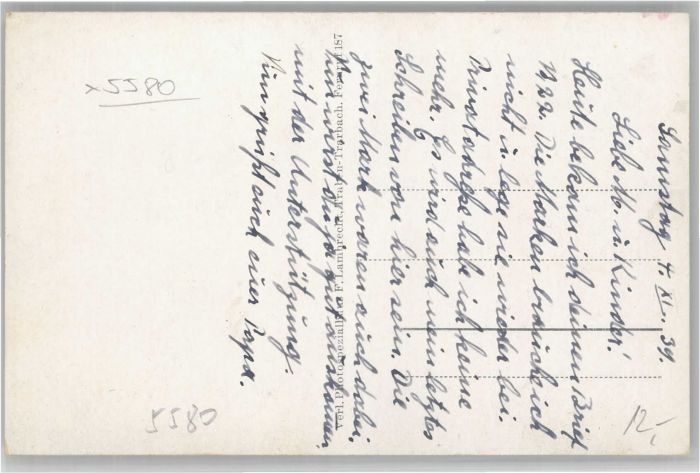 Samstag 4. XI. 39.
Liebe M. u. Kinder!
Heute bekam ich deinen Brief
N. 22. Die Marken brauche ich
nicht u. lege sie wieder bei.
Privatadresse habe ich keine
mehr. Es wird auch mein letztes
Schreiben von hier sein. Die
zwei Mark waren auch dabei.
Nun wirst du ja gut auskommen
mit der Unterstützung.
Nun grüßt euch euer Papa.
Verl. Photospezialhaus F. Lambrecht, Traben-Trarbach. Fernruf 187
x5580
5580
12,-